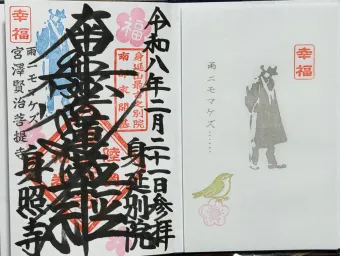 令和八年二月二十一日参拝
身延山最古之別院
身延別院
南無妙法蓮華経
幸福
雨ニモマケズ
宮澤賢治菩提寺
身照寺
幸福
雨ニモマケズ……